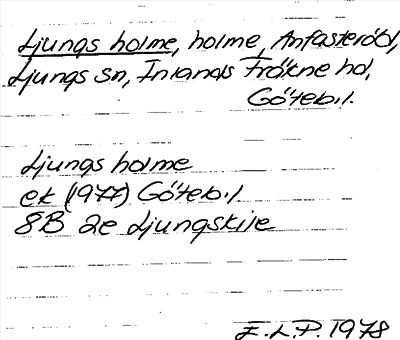 Ljungs holme, holme, Anfasteröd,
Ljungs sn, Inlands Fräkne hd,
Göteb.l.
Ljungs holme
ek (1977) Göteb.l
8B 2e Ljungskile
E.L.P. 1978